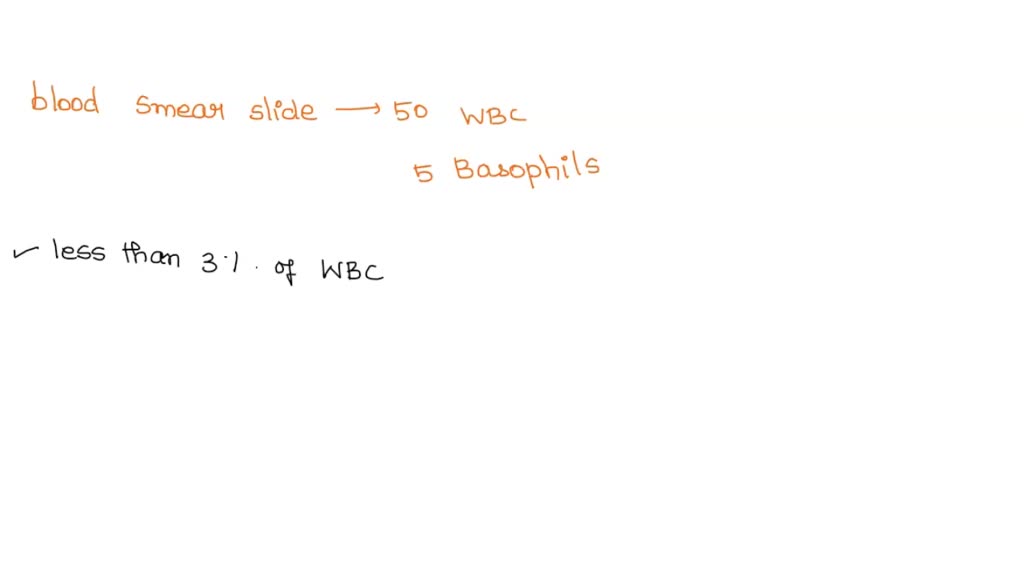 blood smear slide → 50 WBC
5 Basophils
✓ less than 3% of WBC